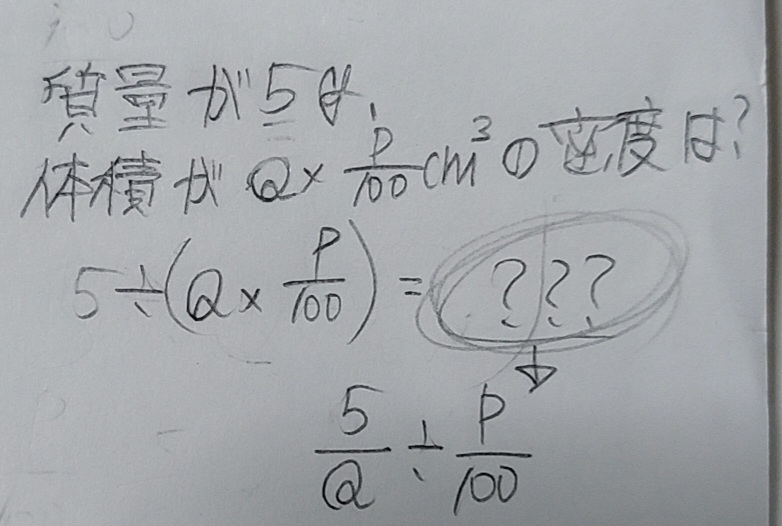 質量が5g、
体積が Q× P/100 cm³の密度は?
5÷(Q× P/100) = ???
↓
5/Q ÷ P/100